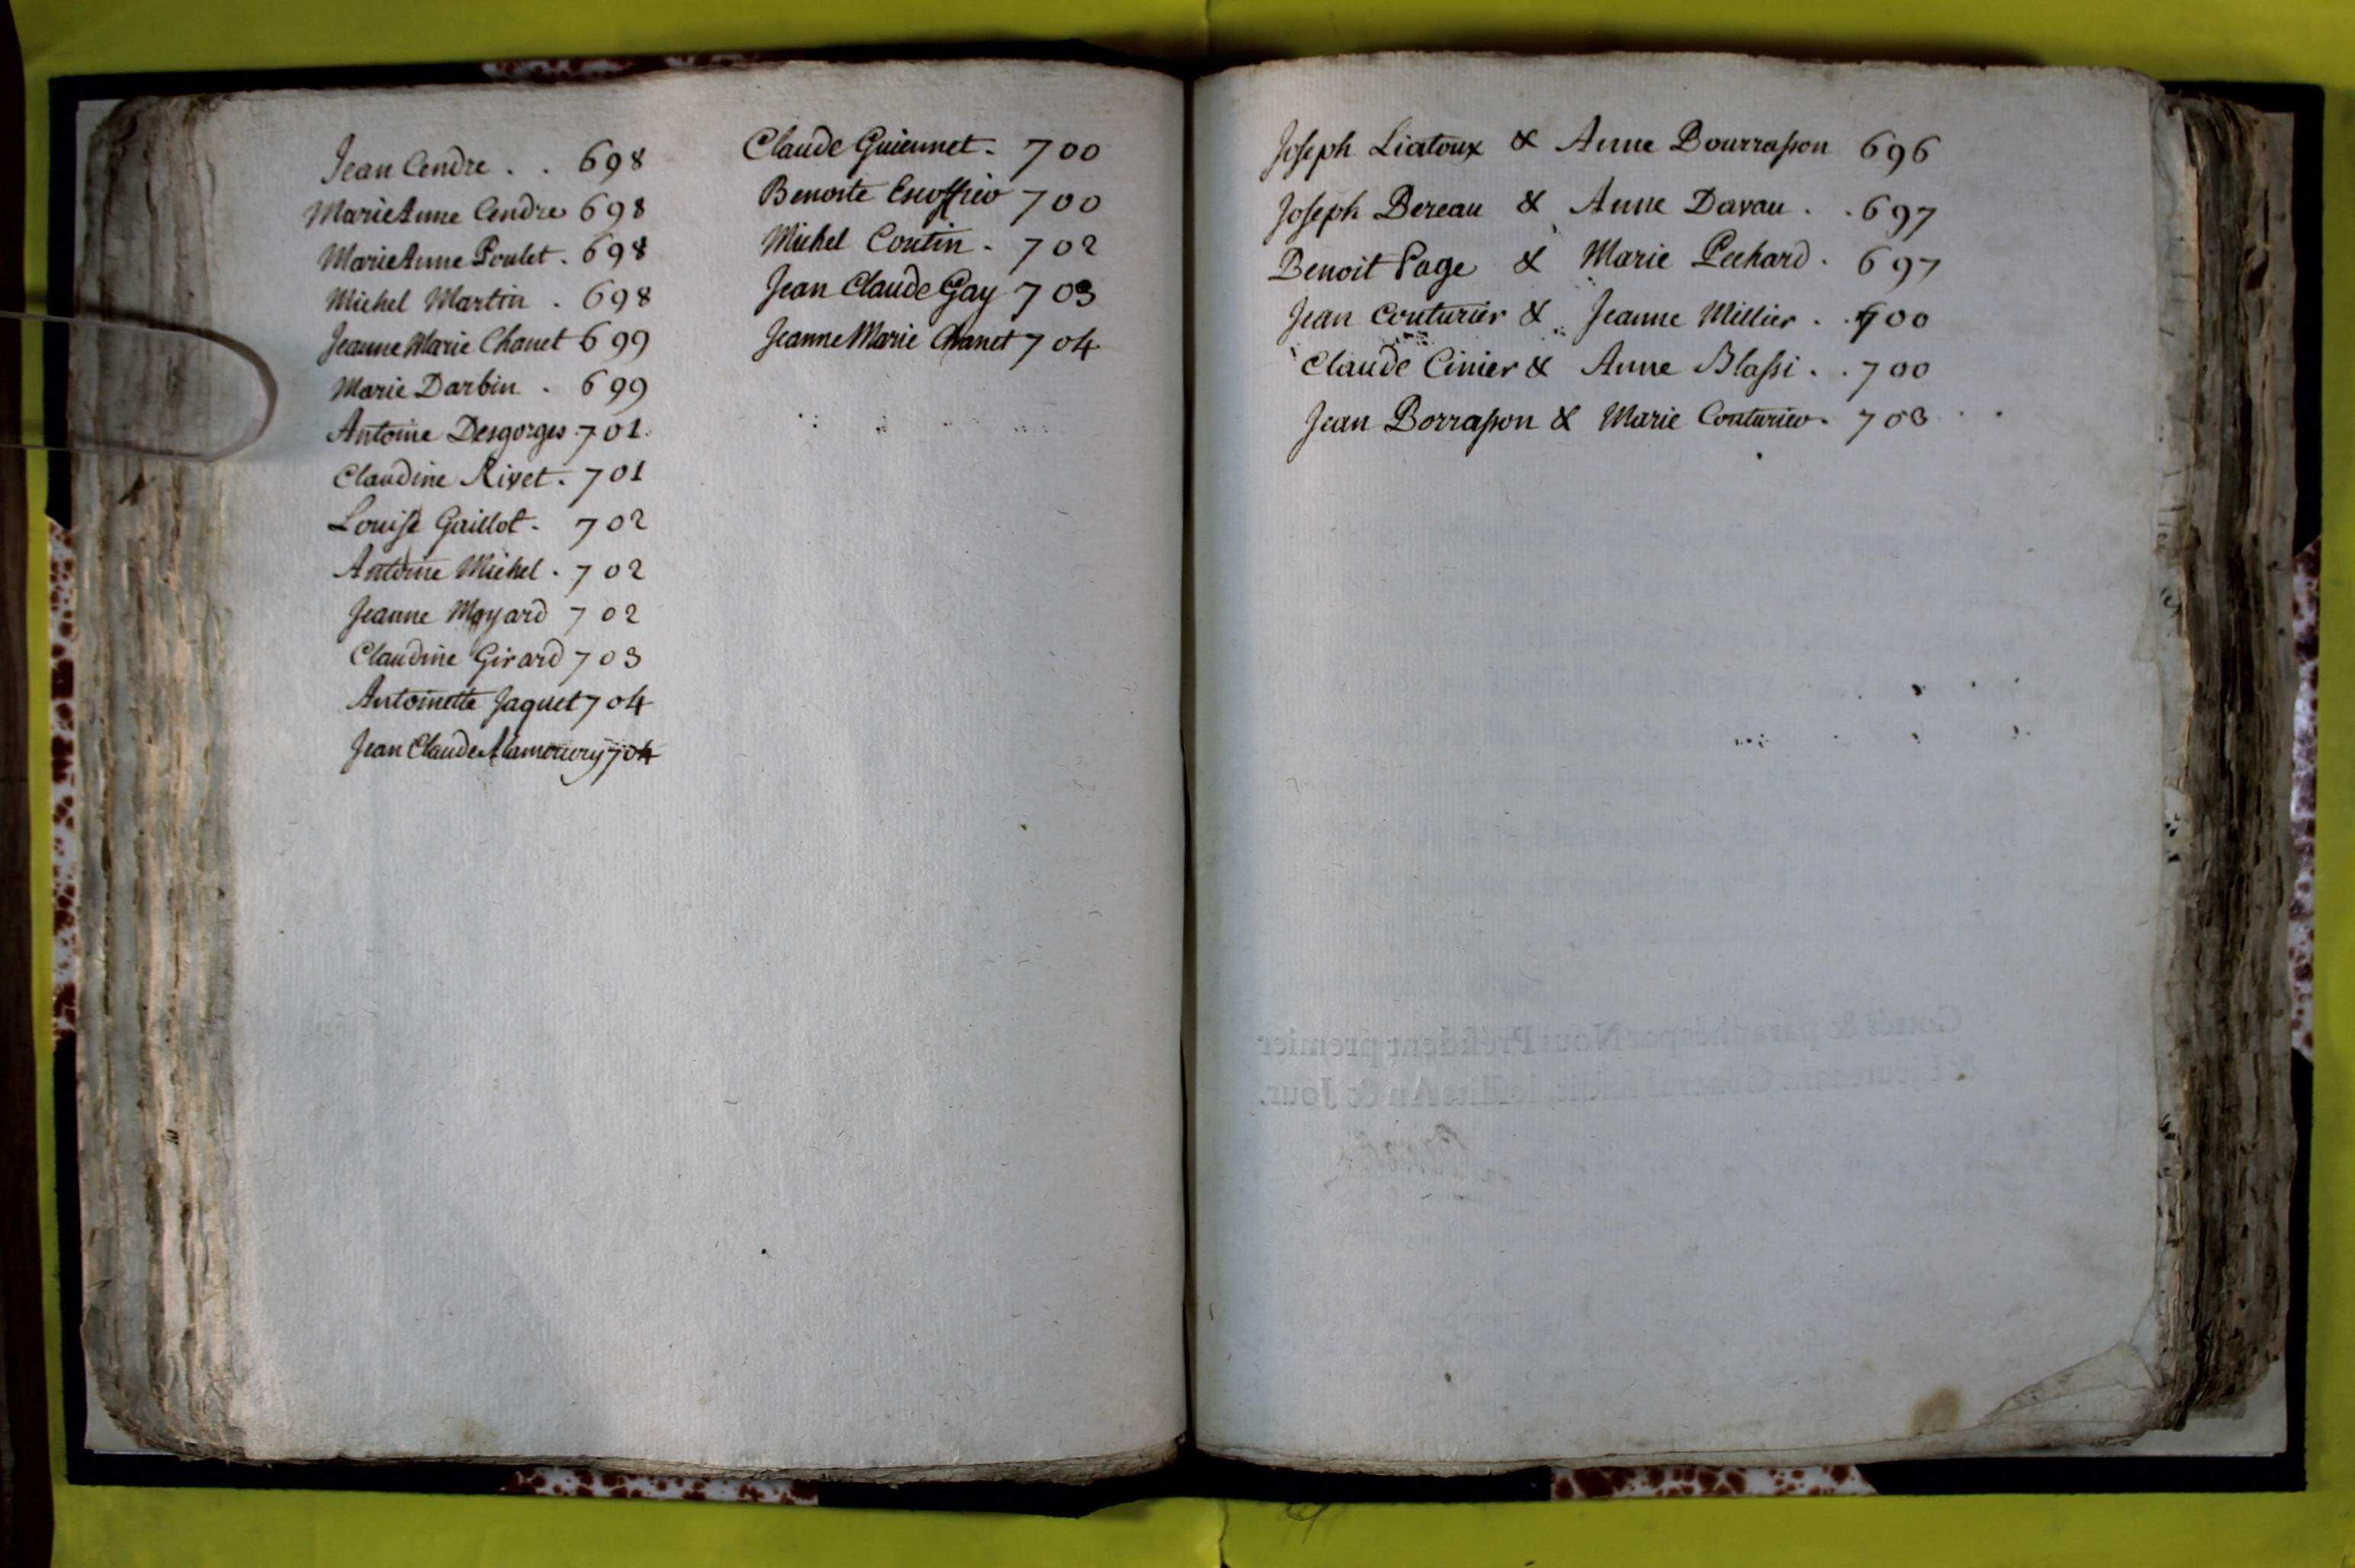 Jean Cendre . . 698
Marie Anne Cendre 698
Marie Anne Poulet . 698
Michel Martin . 698
Jeanne Marie Chanet 699
Marie Darbin . 699
Antoine Desgorges . 701
Claudine Rivet . 701
Louise Gaillot . 702
Antoine Michel . 702
Jeanne Moyard 702
Claudine Girard 703
Antoinette Jaquet 704
Jean Claude 704
Claude Guiennet . 700
Benoite Escoffier 700
Michel Coutin . 702
Jean Claude Gay 703
Jeanne Marie Chanet 704
Joseph Liatoux & Anne Bourrasson 696
Joseph Bereau & Anne Davau . . 697
Benoit Page & Marie Pechard . 697
Jean Couturier & Jeanne Millier . . 700
Claude Cinier & Anne Blassi . . 700
Jean Borrasson & Marie Couturier . 703